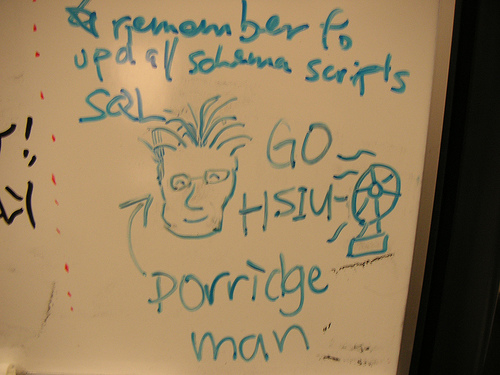 remember to
upd all schema scripts
SQL
GO
HSIU
porridge
man